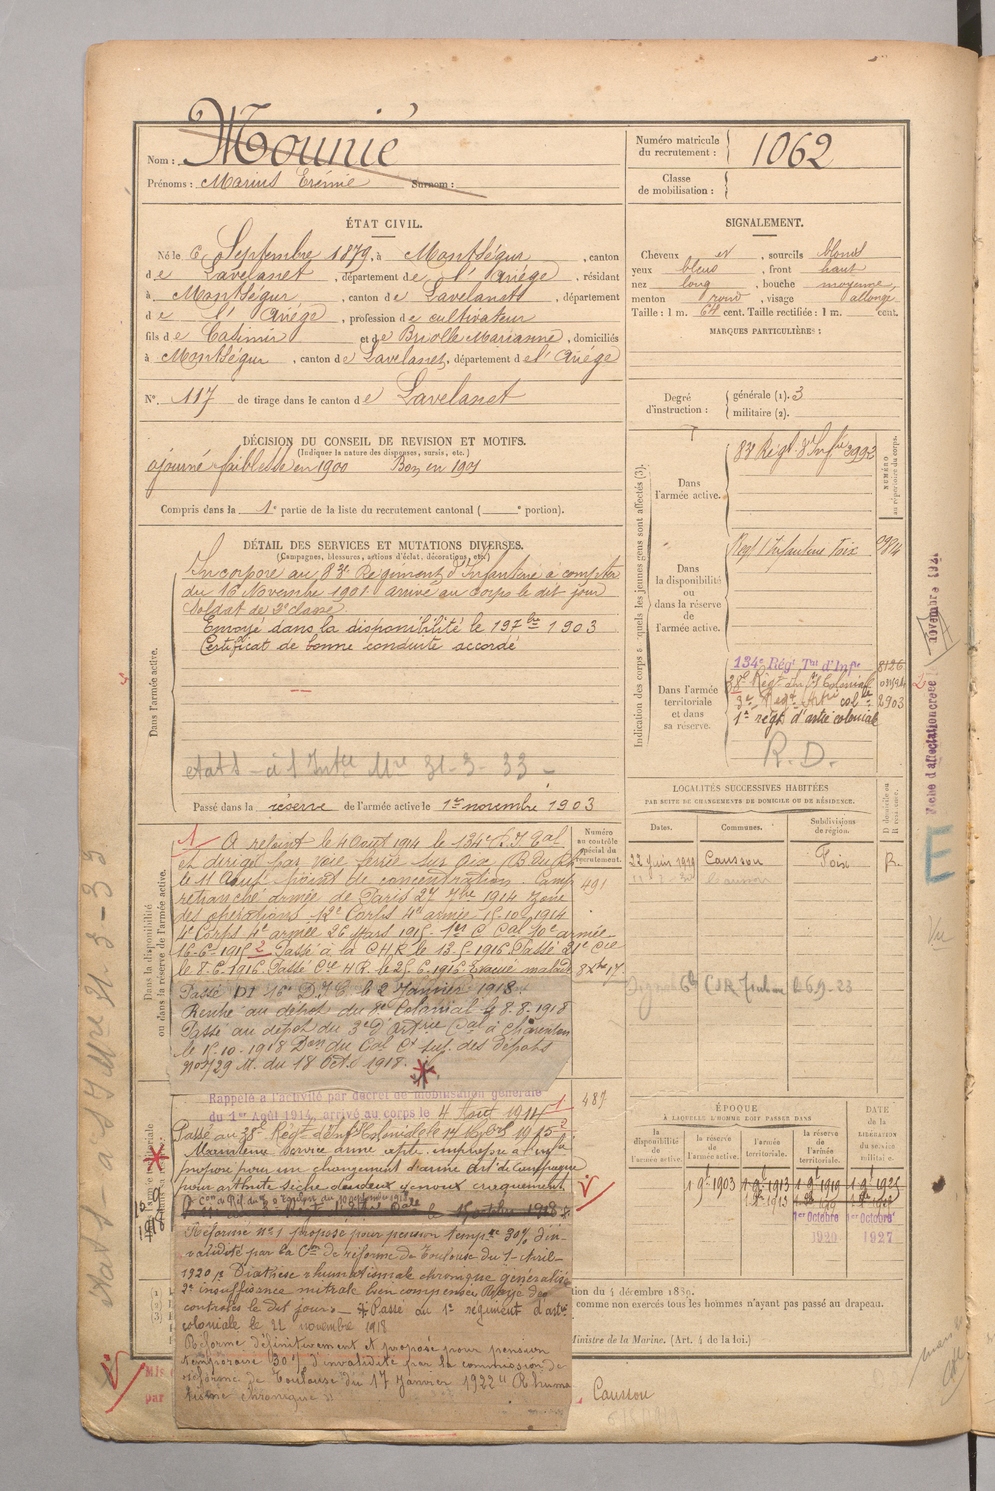 Nom : Mounié
Prénoms : Marius Erémie Surnom :
Numéro matricule du recrutement : 1062
Classe de mobilisation :
ÉTAT CIVIL.
Né le 6 Septembre 1879, à Montségur, canton
de Lavelanet, département de l'Ariège, résidant
à Montségur, canton de Lavelanet, département
de l'Ariège, profession de cultivateur
fils de Casimir et de Briolle Marianne, domiciliés
à Montségur, canton de Lavelanet, département de l'Ariège
N° 117 de tirage dans le canton de Lavelanet
SIGNALEMENT.
Cheveux et, sourcils blonds
yeux bleus, front haut
nez long, bouche moyenne,
menton rond, visage allongé
Taille : 1 m. 64 cent. Taille rectifiée : 1 m. cent.
MARQUES PARTICULIÈRES :
Degré d'instruction : générale (1). 3
militaire (2).
DÉCISION DU CONSEIL DE REVISION ET MOTIFS.
(Indiquer la nature des dispenses, sursis, etc.)
ajourné faiblesse en 1900 Bon en 1901
Compris dans la 1e partie de la liste du recrutement cantonal ( e portion).
DÉTAIL DES SERVICES ET MUTATIONS DIVERSES.
(Campagnes, blessures, actions d'éclat, décorations, etc.)
Dans l'armée active.
Incorporé au 83e Régiment d'Infanterie à compter
du 16 Novembre 1901 arrivé au corps le dit jour
Soldat de 2e classe
Envoyé dans la disponibilité le 19 7bre 1903
Certificat de bonne conduite accordé
31-3-33
Passé dans la réserve de l'armée active le 1er novembre 1903
Indication des corps auxquels les jeunes gens sont affectés (3).
NUMÉRO au répertoire du corps.
Dans l'armée active.
83e Régt d'Infie 3993
Dans la disponibilité ou dans la réserve de l'armée active.
Régt d'Infanterie Foix
Dans l'armée territoriale et dans sa réserve.
134e Régt Tal d'Infie 8126
38e Régt d'Inf Coloniale
3e Régt d'Artie colle 2903
1er régt d'artie coloniale
R.D.
LOCALITÉS SUCCESSIVES HABITÉES
PAR SUITE DE CHANGEMENTS DE DOMICILE OU DE RÉSIDENCE.
Dates. Communes. Subdivisions de région. D domicile ou R résidence.
22 Juin 1919 Caussou Foix R.
Dans la disponibilité ou dans la réserve de l'armée active.
Numéro au contrôle spécial du recrutement.
491
A rejoint le 4 Août 1914 le 134e R.I. Tal
et dirigé par voie ferrée sur
le 11 Août point de concentration. Camp
retranché armée de Paris 27 7bre 1914 zone
des opérations. 12e Corps 4e armée 15-10-1914
1e Corps 4e armée 26 Mars 1915. 1er C. Cal 10e armée
16-6-1915 2 Passé à la C.H.R. le 13.5.1916. Passé 21e Cie
le 8.6.1916. Passé Cie H.R. le 25.6.1916. Évacué malade 8 8bre 17.
Passé DI 16e D.I.C. le 2 Janvier 1918.
Rentré au dépôt du 8e Colonial le 8.8.1918
Passé au dépôt du 3e d'Artrie Cal à Charenton
le 15.10.1918 Don du Cal Ct sup. des dépôts
No 729 M. du 18 Octe 1918.
Rappelé à l'activité par décret de mobilisation générale
du 1er Août 1914, arrivé au corps le 4 Août 1914
489
Passé au 38e Régt d'Inf Coloniale le 17 1915
Maintenu service armé
proposé pour un changement d'arme art. de Campagne
pour arthrite sèche des deux genoux craquements
Réforme no 1 proposé pour pension tempre 30% d'in-
validité par la Con de réforme de Toulouse du 1er Avril
1920 pr Diathèse rhumatismale chronique généralisée
2° insuffisance mitrale bien compensée Rayé des
contrôles le dit jour - Passé au 1er régiment d'artie
coloniale le 21 novembre 1918
Réformé définitivement et proposé pour pension
temporaire 30% d'invalidité par la commission de
réforme de Toulouse du 17 janvier 1922 "Rhuma
tisme chronique"
ÉPOQUE
À LAQUELLE L'HOMME DOIT PASSER DANS
la disponibilité de l'armée active. la réserve de l'armée active. l'armée territoriale. la réserve de l'armée territoriale. DATE de la LIBÉRATION du service militaire.
1 9bre 1903 1 9bre 1913 1 9bre 1919 1 9bre 1925
1er Octobre 1920 1er Octobre 1927
tion du 4 décembre 1889.
comme non exercés tous les hommes n'ayant pas passé au drapeau.
Ministre de la Marine. (Art. 4 de la loi.)
Caussou
Fiche d'affectation créée
novembre 1921
E
Vu